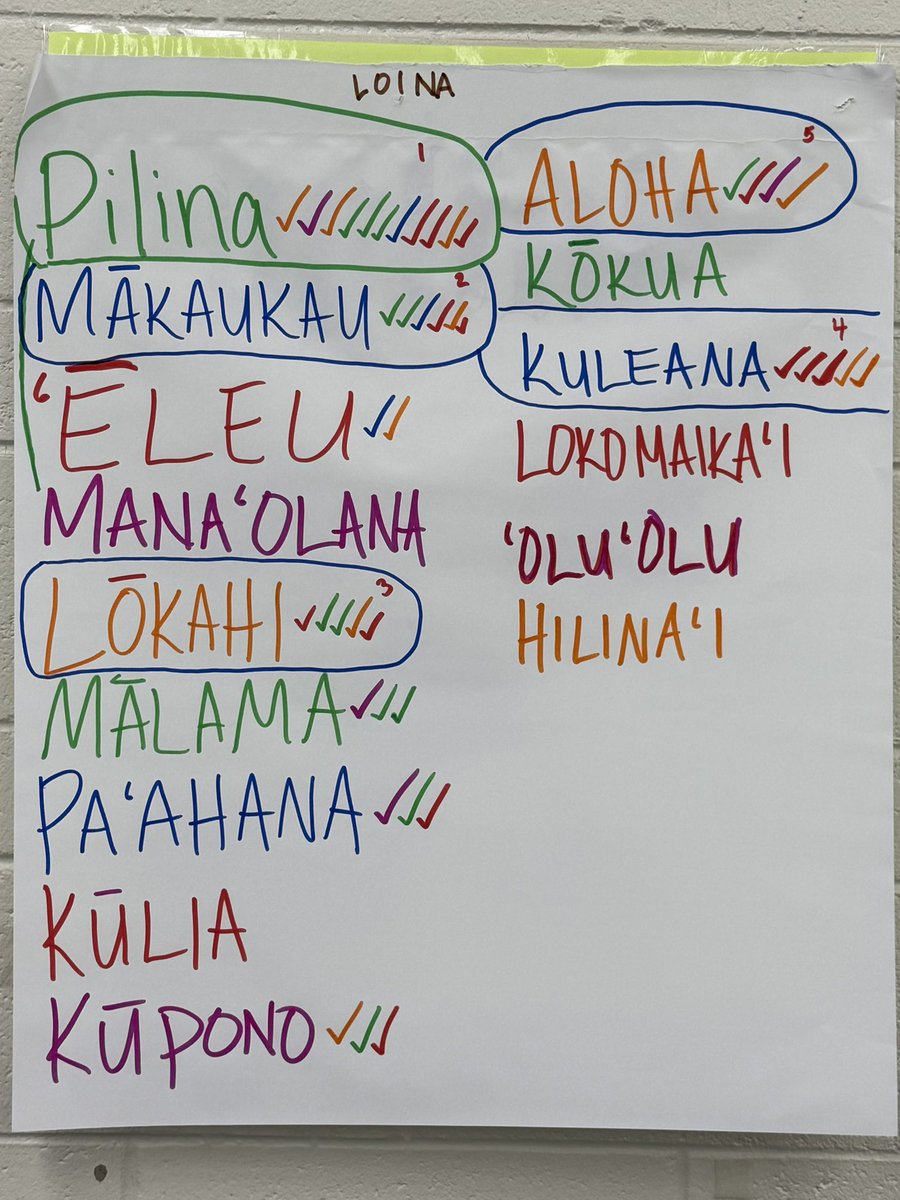 LOINA
Pilina ✓✓✓✓✓✓✓✓✓✓✓ 1
MĀKAUKAU ✓✓✓✓✓✓ 2
ʻĒLEU ✓✓
MANAʻOLANA
LŌKAHI ✓✓✓✓✓ 3
MĀLAMA ✓✓✓
PAʻAHANA ✓✓✓
KŪLIA
KŪPONO ✓✓✓
ALOHA ✓✓✓✓✓ 5
KŌKUA
KULEANA ✓✓✓✓✓ 4
LOKOMAIKAʻI
ʻOLUʻOLU
HILINAʻI